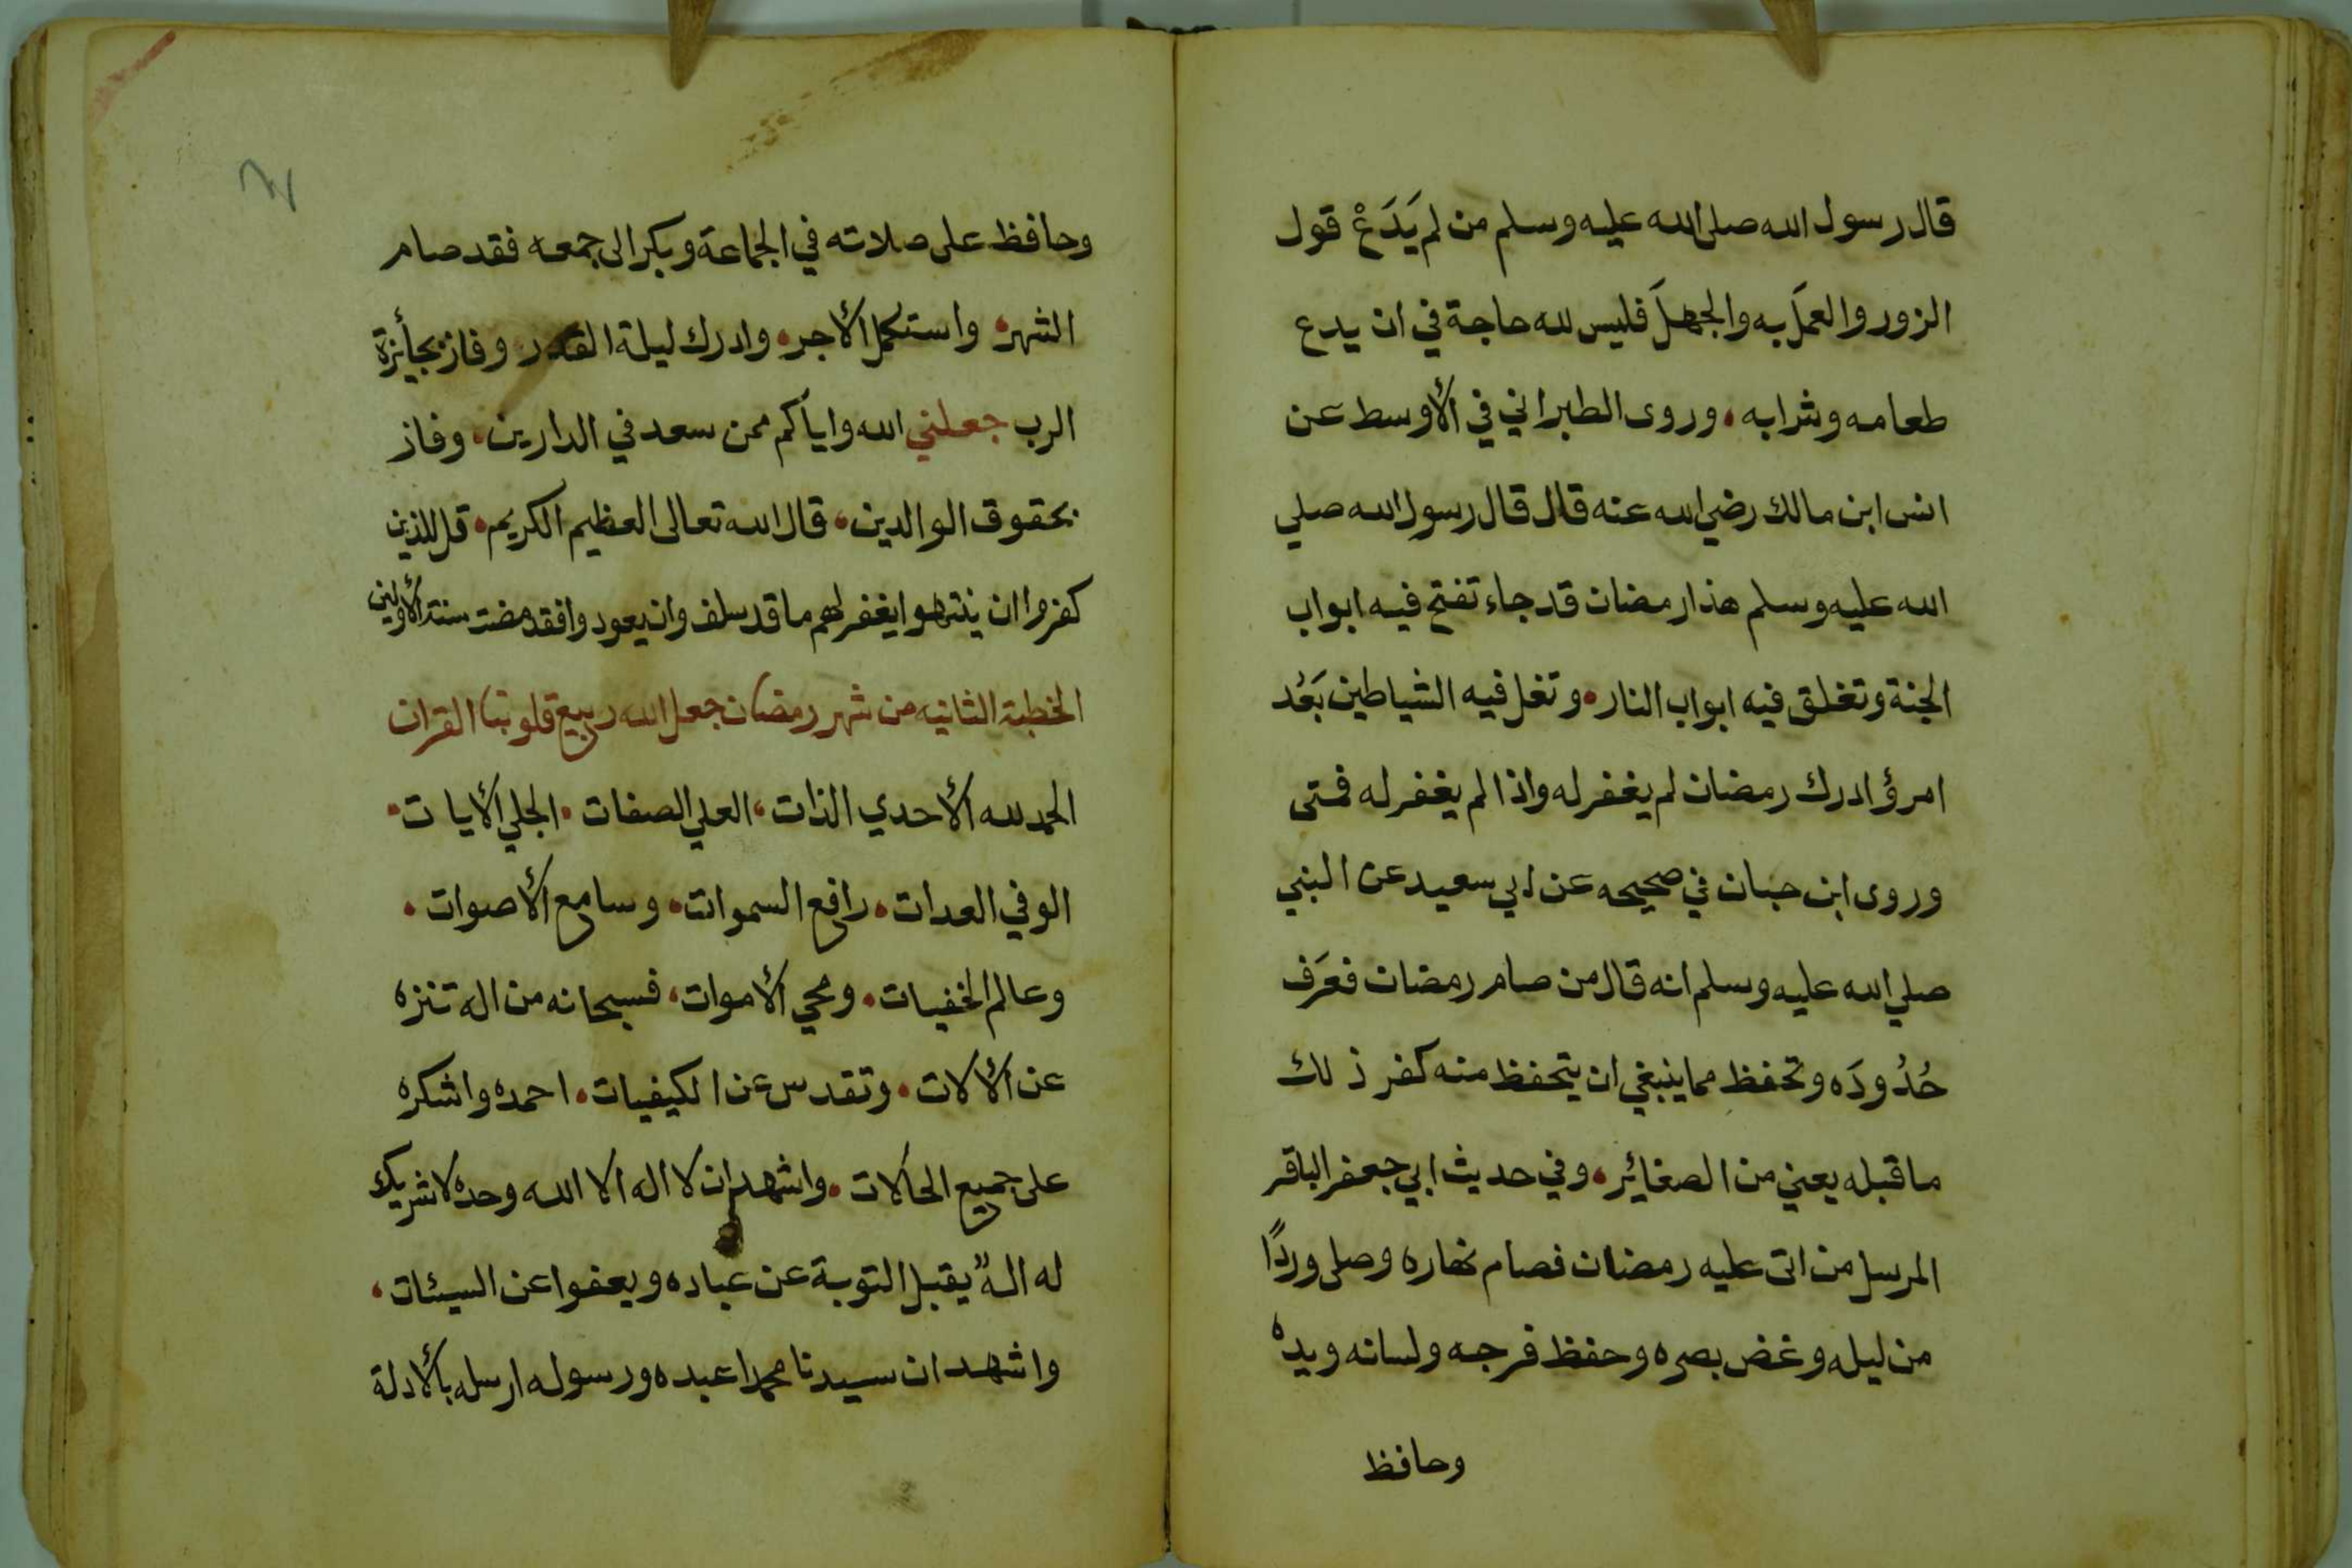 قال رسول الله صلى الله عليه وسلم من لم يَدَعْ قول
الزور والعمَل به والجهلَ فليس لله حاجة في ان يدع
طعامه وشرابه، وروى الطبراني في الأوسط عن
انس ابن مالك رضي الله عنه قال قال رسول الله صلي
الله عليه وسلم هذا رمضان قد جاء تفتح فيه ابواب
الجنة وتغلق فيه ابواب النار، وتغل فيه الشياطين بَعُد
امرؤ ادرك رمضان لم يغفر له واذا لم يغفر له فمتى
وروى ابن حبان في صحيحه عن ابي سعيد عن النبي
صلي الله عليه وسلم انه قال من صام رمضان فعَرَف
حُدُودَه وتحفظ مما ينبغي ان يتحفظ منه كفر ذلك
ما قبله يعني من الصغائر، وفي حديث ابي جعفر الباقر
المرسل من اتى عليه رمضان فصام نهاره وصلى وردًا
من ليله وغض بصره وحفظ فرجه ولسانه ويده
وحافظ
وحافظ على صلاته في الجماعة وبكر الى جمعه فقد صام
الشهر، واستكمل الأجر، وادرك ليلة القدر، وفاز بجأئزة
الرب جعلني الله واياكم ممن سعد في الدارين، وفاز
بحقوق الوالدين، قال الله تعالى العظيم الكريم، قل للذين
كفروا ان ينتهوا يغفر لهم ما قد سلف وان يعودوا فقد مضت سنة الأولين
الخطبة الثانيه من شهر رمضان جعل الله ربيع قلوبنا القران
الحمد لله الأحدي الذات، العلي الصفات، الجلي الأيات،
الوفي العدات، رافع السموات، وسامع الأصوات،
وعالم الخفيات، ومحي الأموات، فسبحانه من اله تنزه
عن الألات، وتقدس عن الكيفيات، احمده واشكره
على جميع الحالات، واشهد ان لا اله الا الله وحده لا شريك
له الهٌ يقبل التوبة عن عباده ويعفوا عن السيئات،
واشهد ان سيدنا محمدا عبده ورسوله ارسله بالأدلة